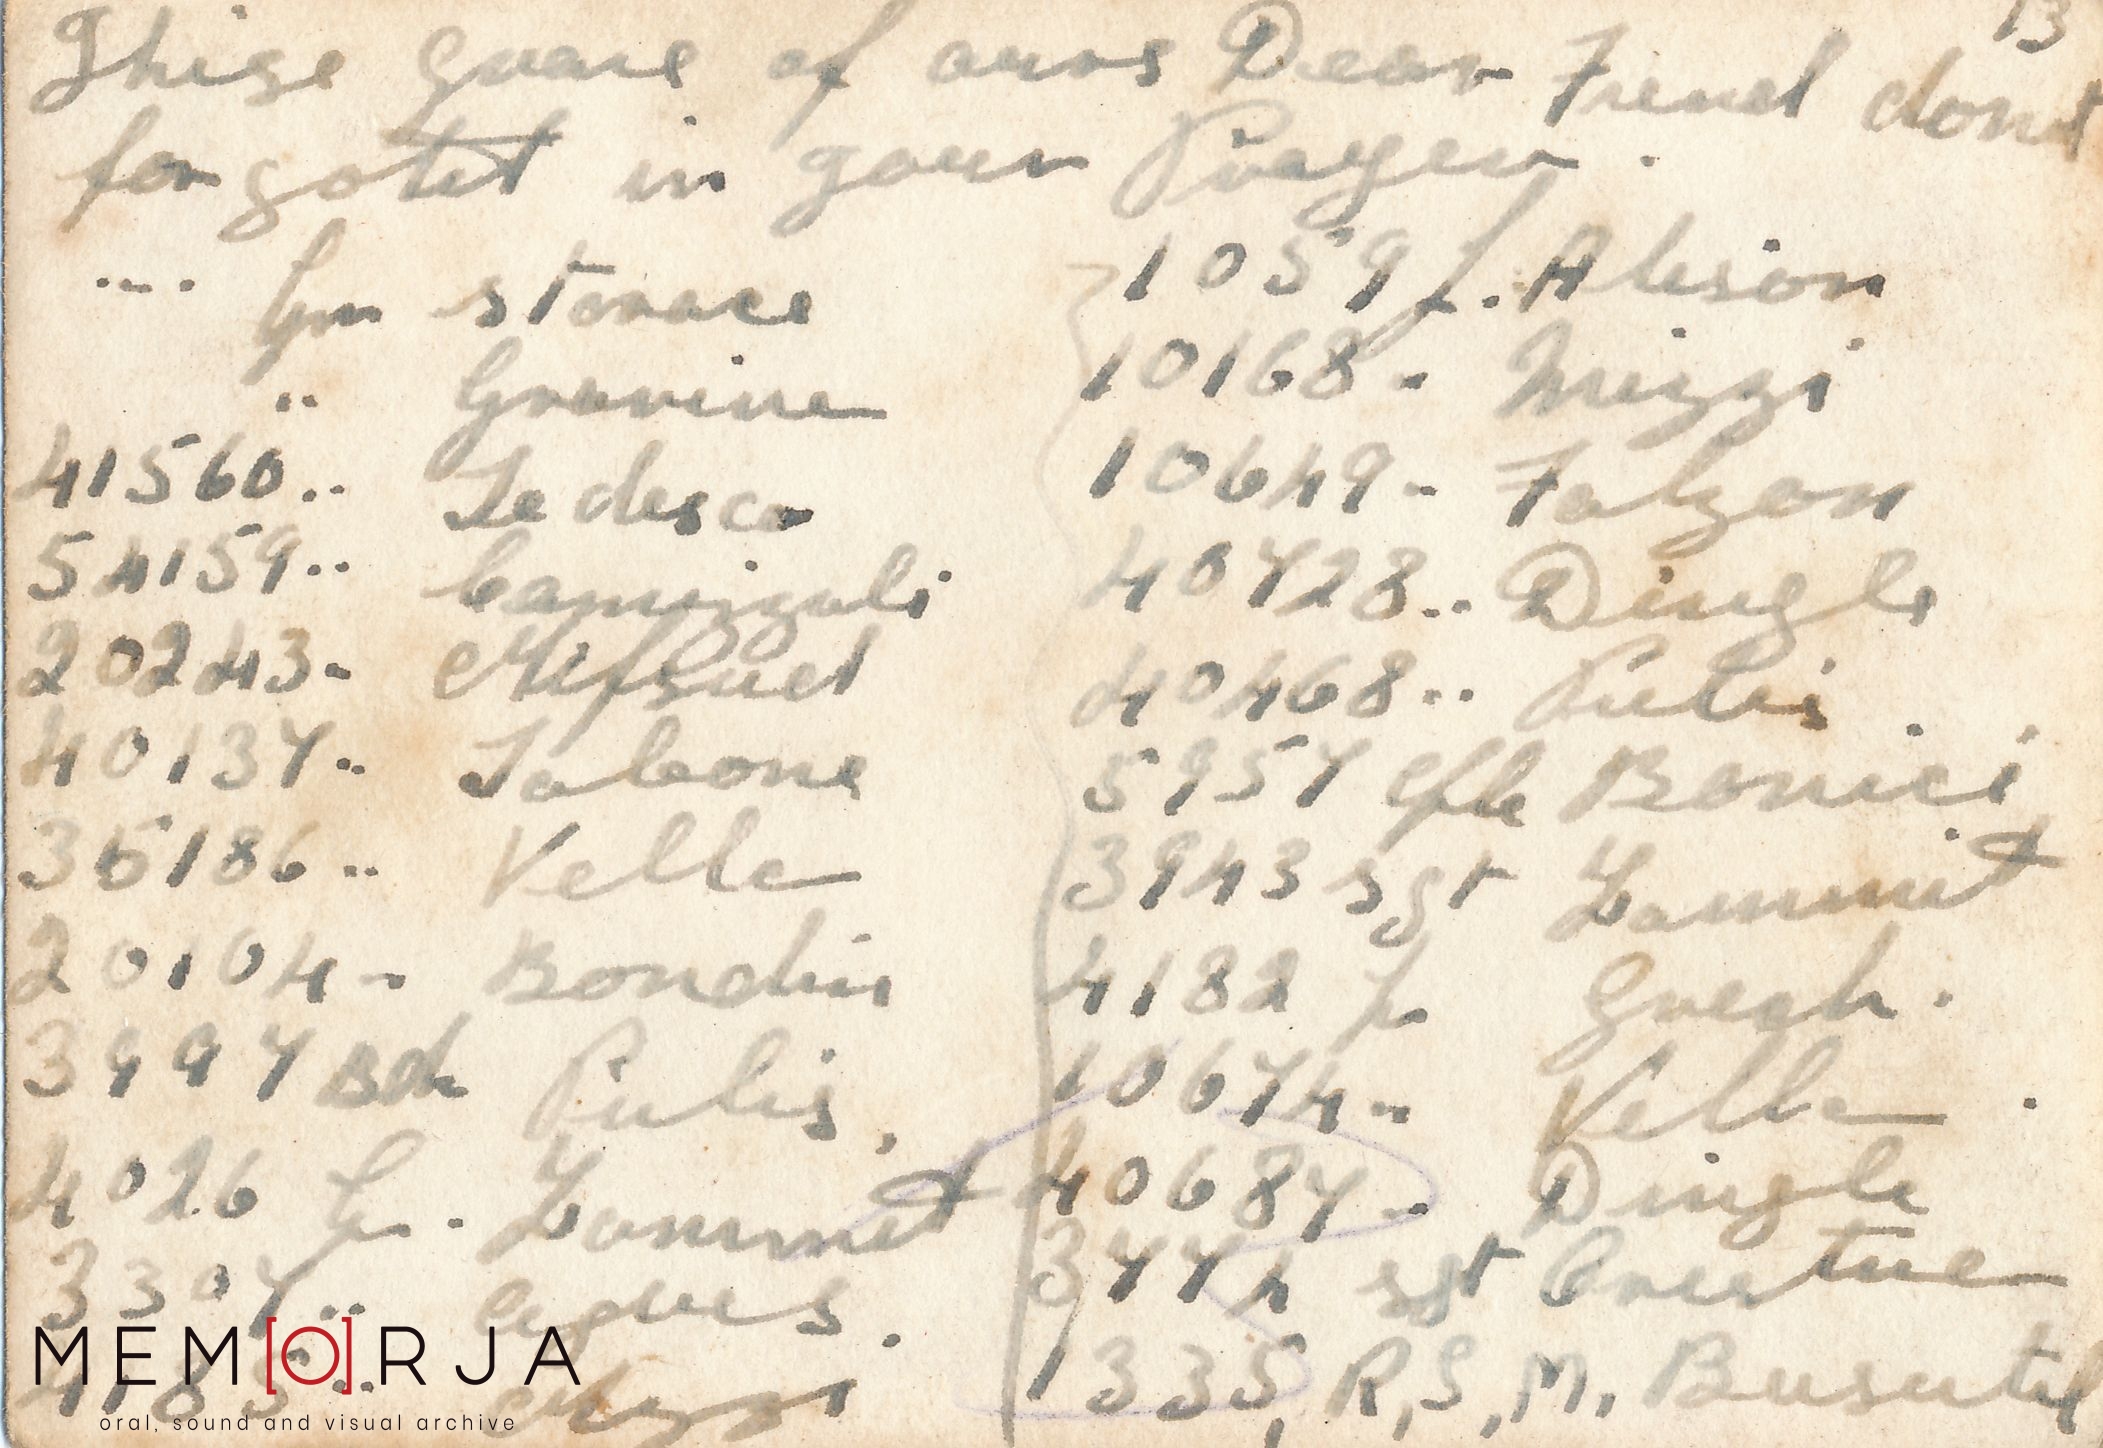 13
Thise grave of ours Dear Frend dont
forgotet in your Prayer.
.... Gn storace
.. Gravine
41560.. Tedesco
54159.. Camizzuli
20243.. Mifsued
40137.. Tabone
35186.. Vella
20104.. Bondin
3997 Bdr Pulis.
4026 Gr. Zammit
3307..
4183.. Mizzi
1059 L. Alison
10168.. Mizzi
10649.. Falzon
40728.. Dingli
40468.. Pulis.
5957 Bonici
3943 sgt Zammit
4182 Grech.
10674.. Vella.
40687.. Dingle
3774 sgt
1335, R,S,M, Busutel
MEM[O]RJA
oral, sound and visual archive